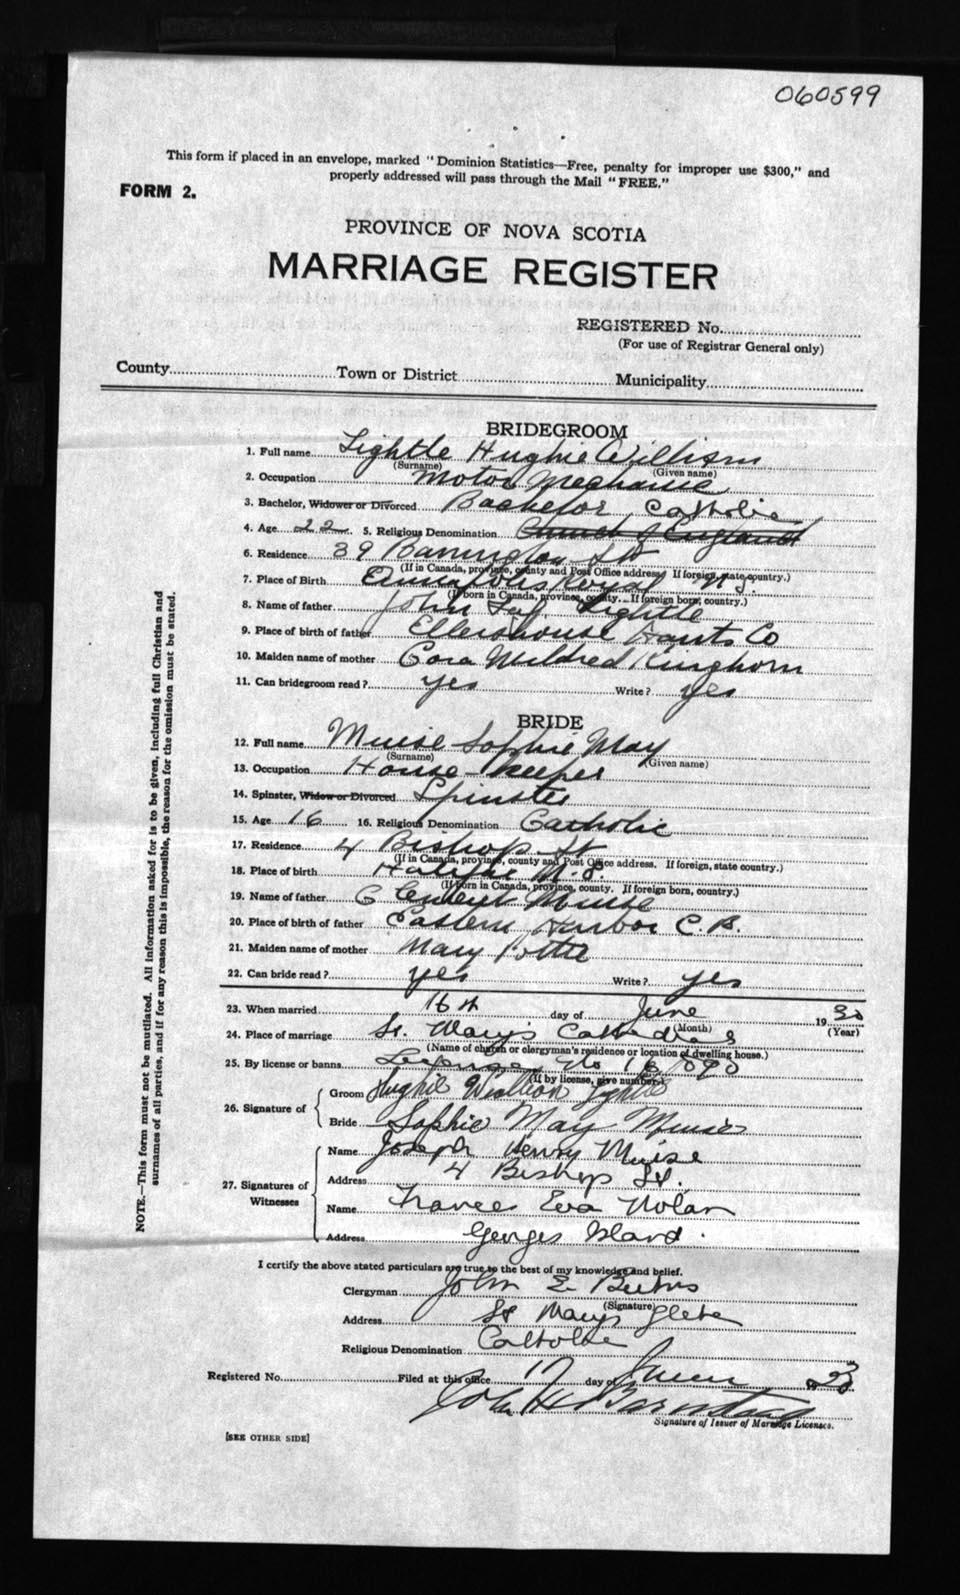 060599
This form if placed in an envelope, marked "Dominion Statistics—Free, penalty for improper use $300," and
properly addressed will pass through the Mail "FREE."
FORM 2.
PROVINCE OF NOVA SCOTIA
MARRIAGE REGISTER
REGISTERED No.
(For use of Registrar General only)
County Town or District Municipality
BRIDEGROOM
1. Full name Lightle Hughie William
(Surname) (Given name)
2. Occupation Motor Mechanic
3. Bachelor, Widower or Divorced Bachelor Catholic
4. Age 22 5. Religious Denomination Church of England
6. Residence 39 Barrington St
(If in Canada, province, county and Post Office address. If foreign, state country.)
7. Place of Birth Annapolis Royal N.S.
(If born in Canada, province, county. If foreign born, country.)
8. Name of father John Lightle
9. Place of birth of father Ellershouse Hants Co
10. Maiden name of mother Cora Mildred Kinghorn
11. Can bridegroom read? yes Write? yes
BRIDE
12. Full name Muise Sophie May
(Surname) (Given name)
13. Occupation House-keeper
14. Spinster, Widow or Divorced Spinster
15. Age 16 16. Religious Denomination Catholic
17. Residence 4 Bishop St
(If in Canada, province, county and Post Office address. If foreign, state country.)
18. Place of birth Halifax N.S.
(If born in Canada, province, county. If foreign born, country.)
19. Name of father Clement Muise
20. Place of birth of father Eastern Harbor C.B.
21. Maiden name of mother Mary Pottie
22. Can bride read? yes Write? yes
23. When married 16th day of June 1930
(Month) (Year)
24. Place of marriage St. Mary's Cathedral
(Name of church or clergyman's residence or location of dwelling house.)
25. By license or banns License No
(If by license, give number.)
26. Signature of
Groom Hughie William Lightle
Bride Sophie May Muise
27. Signatures of Witnesses
Name Joseph Henry Muise
Address 4 Bishop St.
Name Frances Eva Nolan
Address Georges Island.
I certify the above stated particulars are true to the best of my knowledge and belief.
Clergyman John E. Burns
(Signature)
Address St Marys Glebe
Religious Denomination Catholic
Registered No. Filed at this office 17 day of June 30
John
Signature of Issuer of Marriage Licenses.
[SEE OTHER SIDE]
NOTE.—This form must not be mutilated. All information asked for is to be given, including full Christian and
surnames of all parties, and if for any reason this is impossible, the reason for the omission must be stated.